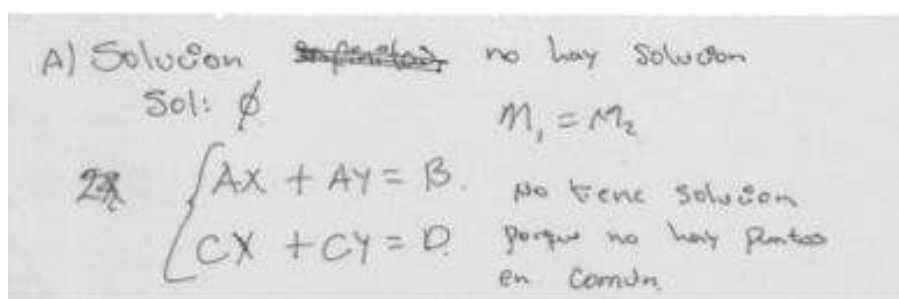 A) Solucion no hay solucion
Sol: ∅
M₁ = M₂
AX + AY = B.
CX + CY = D.
No tiene solucion
porque no hay puntos
en común.